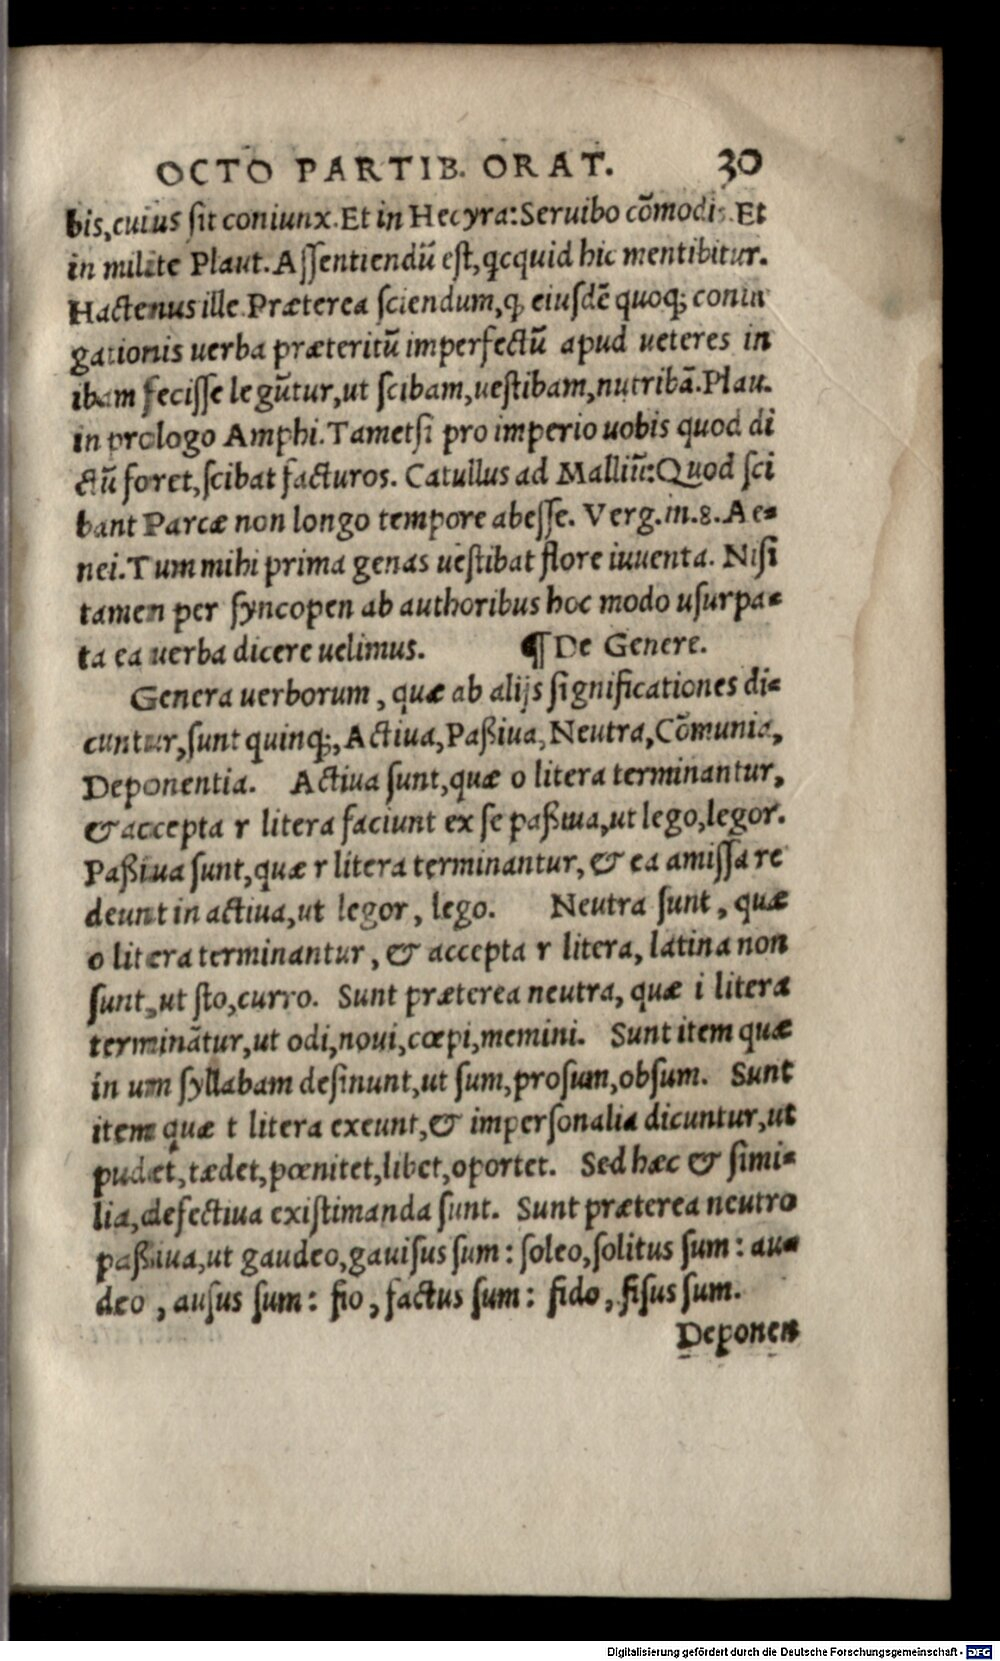 OCTO PARTIB. ORAT. 30
bis,cuius ſit coniunx.Et in Hecyra:Seruibo cōmodis.Et
in milite Plaut.Aſſentiendū eſt,qcquid hic mentibitur.
Hactenus ille.Præterea ſciendum,ꝙ eiuſdē quoqꝫ coniu
gationis uerba præteritū imperfectū apud ueteres in
ibam feciſſe legūtur,ut ſcibam,ueſtibam,nutribā.Plau.
in prologo Amphi.Tametſi pro imperio uobis quod di
ctū foret,ſcibat facturos. Catullus ad Malliū:Quod ſci
bant Parcæ non longo tempore abeſſe. Verg.in.8.Ae-
nei.Tum mihi prima genas ueſtibat flore iuuenta. Niſi
tamen per ſyncopen ab authoribus hoc modo uſurpa-
ta ea uerba dicere uelimus. ¶De Genere.
Genera uerborum, quæ ab alijs ſignificationes di-
cuntur,ſunt quinqꝫ,Actiua,Paßiua,Neutra,Cōmunia,
Deponentia. Actiua ſunt,quæ o litera terminantur,
& accepta r litera faciunt ex ſe paßiua,ut lego,legor.
Paßiua ſunt,quæ r litera terminantur, & ea amiſſa re
deunt in actiua,ut legor, lego. Neutra ſunt, quæ
o litera terminantur, & accepta r litera, latina non
ſunt,ut ſto,curro. Sunt præterea neutra, quæ i litera
terminātur,ut odi,noui,cœpi,memini. Sunt item quæ
in um ſyllabam deſinunt,ut ſum,proſum,obſum. Sunt
item quæ t litera exeunt,& imperſonalia dicuntur,ut
pudet,tædet,pœnitet,libet,oportet. Sed hæc & ſimi-
lia,defectiua exiſtimanda ſunt. Sunt præterea neutro
paßiua,ut gaudeo,gauiſus ſum: ſoleo,ſolitus ſum: au-
deo, auſus ſum: fio, factus ſum: fido, fiſus ſum.
Deponen
Digitalisierung gefördert durch die Deutsche Forschungsgemeinschaft - DFG